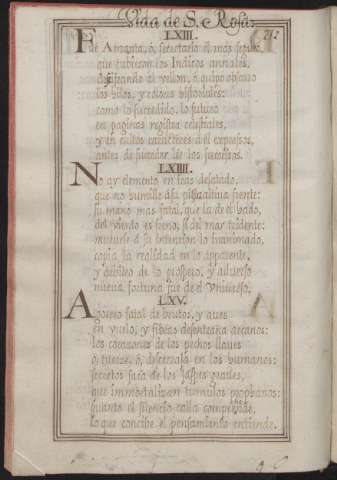 Vida de S. Rosa.
212
LXIII.
Fue Amauta, ó, sectario el mas seguro,
que tubieron los Indicos annales,
descifrando al vellon, ó quipo obscuro
los hilos, y colores historiales:
como lo succedido, lo futuro
en paginas registra celestiales,
y en cultos caracteres d'el expressos,
antes de suceder lee los sucessos.
LXIIII.
No ay elemento en iras desatado,
que no humille à su planta altiva frente:
su mano mas fatal, que la de el hado,
del viento es freno, si del mar tridente:
mueuele à su intencion lo inanimado,
copia la realidad en lo apparente,
y arbitro de lo prospero, y aduerso
nueua fortuna fue de el Vniuerso.
LXV.
Agorero fatal de brutos, y aues
en vuelo, y fibras desentraña arcanos:
los corazones de los pechos llaues
ò, tuerze, ò, descerraja en los humanos:
secretos saca de los jaspes graues,
que immortalizan tumulos prophanos:
quanto el silencio calla comprehende,
lo que concibe el pensamiento entiende.